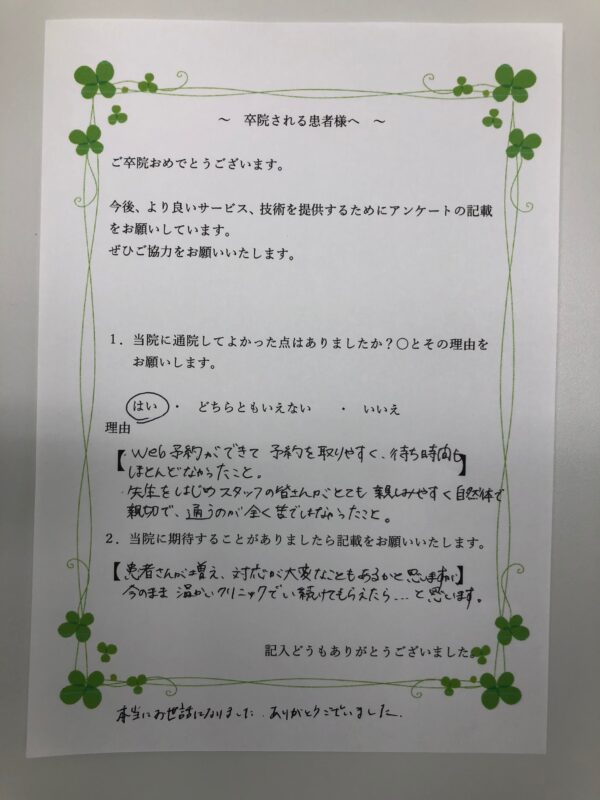 ～　卒院される患者様へ　～
ご卒院おめでとうございます。
今後、より良いサービス、技術を提供するためにアンケートの記載
をお願いしています。
ぜひご協力をお願いいたします。
１．当院に通院してよかった点はありましたか？〇とその理由を
お願いします。
はい　・　どちらともいえない　・　いいえ
理由
【・Web予約ができて 予約を取りやすく、待ち時間も】
ほとんどなかったこと。
・先生をはじめスタッフの皆さんがとても 親しみやすく自然体で
親切で、通うのが全く苦ではなかったこと。
２．当院に期待することがありましたら記載をお願いいたします。
【患者さんが増え、対応が大変なこともあるかと思いますが】
今のまま 温かいクリニックでい続けてもらえたら…と思います。
記入どうもありがとうございました。
本当にお世話になりました。ありがとうございました。